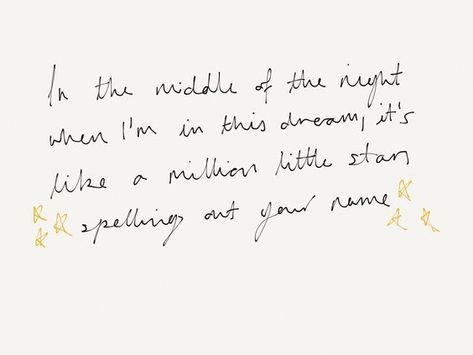 In the middle of the night
when I'm in this dream, it's
like a million little stars
spelling out your name